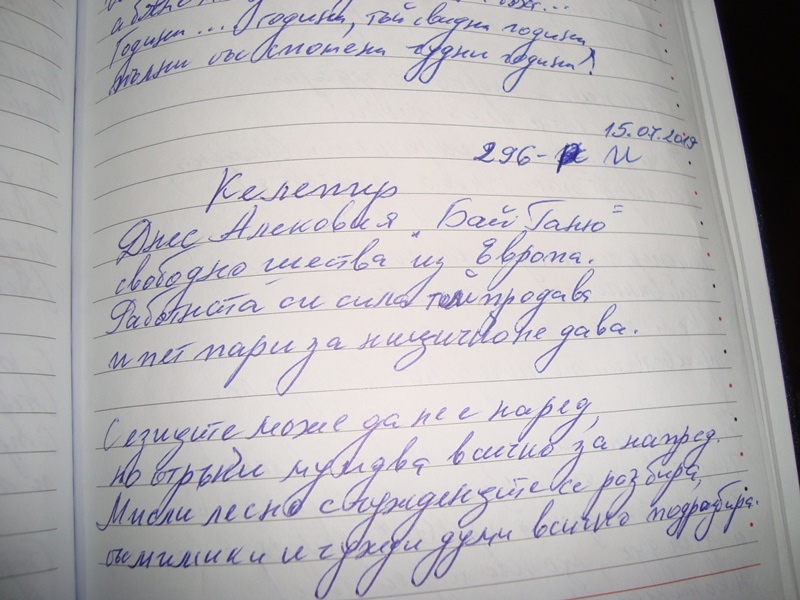 години... години, той свидни години
пълни със спомени чудни години!
15.07.2019
296-
Келепир
Днес Алековия „Бай Ганю"
свободно шества из Европа.
Работната си сила той продава
и пет пари за нищичко не дава.
С езиците може да не е наред,
но отръки му идва всичко за напред.
Мисли лесно с чужденците се разбира,
със мимики и чужди думи всичко подразбира.